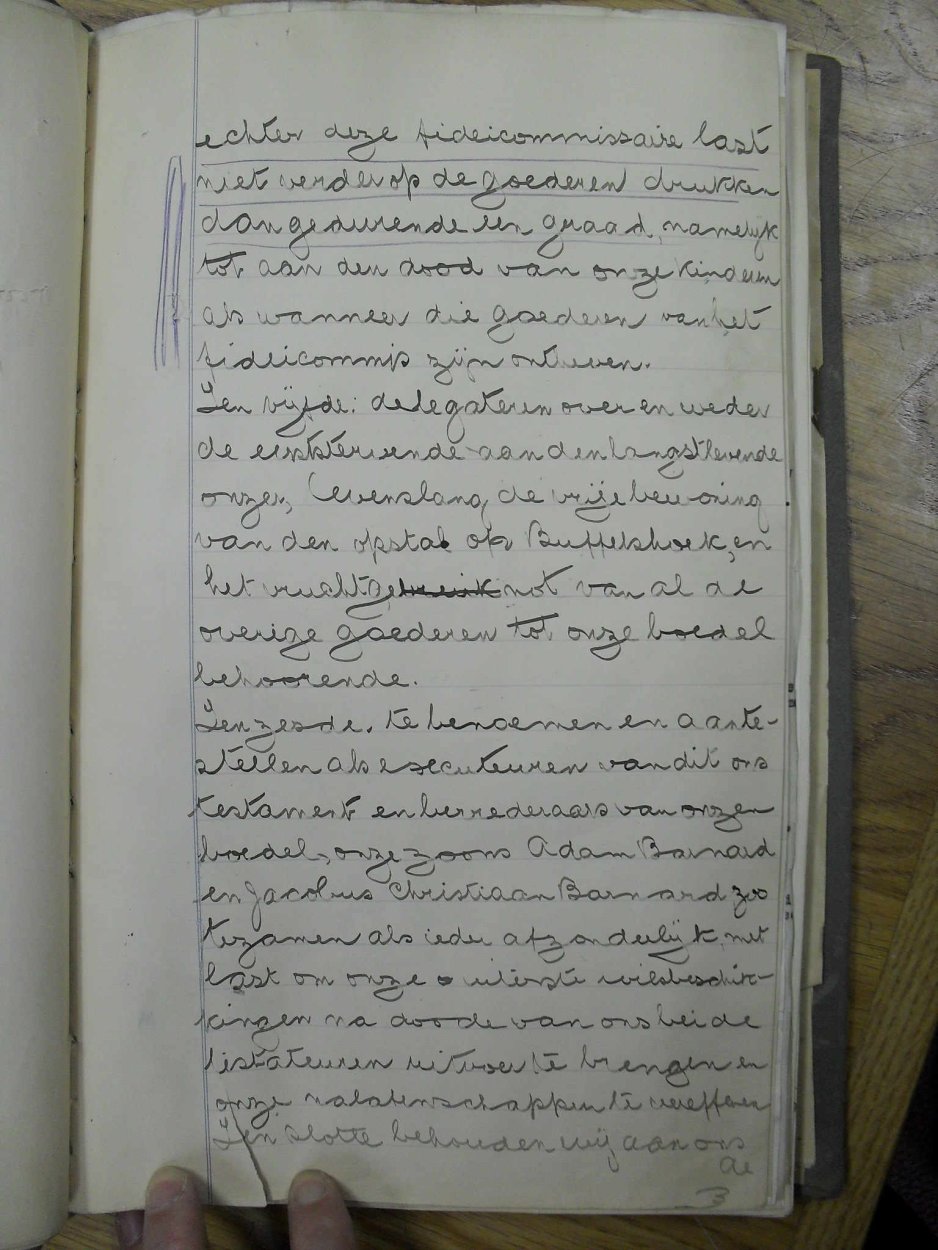 echter deze fideicommissaire last
niet verder op de goederen drukken
dan gedurende een graad, namelijk
tot aan den dood van onze kinderen
als wanneer die goederen van het
fideicommis zijn ontheven.
Ten vijfde: delegateren over en weder
de eerststervende aan den langstlevende
onzer, levenslang, de vrije bewoning
van den opstal op Buffelshoek, en
het vruchtgebruik not van al de
overige goederen tot onze boedel
behoorende.
Ten zesde. te benoemen en aante-
stellen als executeuren van dit ons
testament en berrederaars van onzen
boedel, onze zoons Adam Barnard
en Jacobus Christiaan Barnard zoo
tezamen als ieder afzonderlijk, met
last om onze uiterste wilsbeschik-
kingen na doode van ons beide
testateuren uitvoer te brengen en
onze nalatenschappen te vereffenen
Ten slotte behouden wij aan ons
de
3